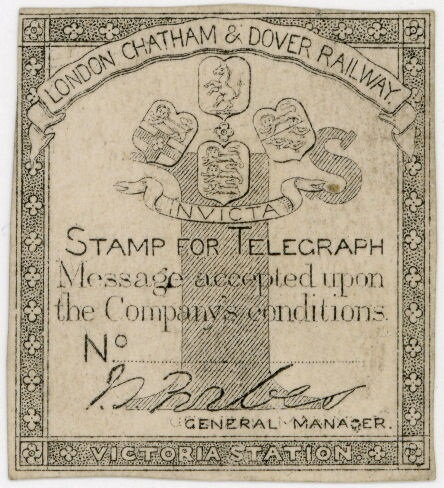 LONDON CHATHAM & DOVER RAILWAY.
INVICTA
1 S
STAMP FOR TELEGRAPH
Message accepted upon
the Company's conditions.
No.
J S Forbes
GENERAL MANAGER.
VICTORIA STATION